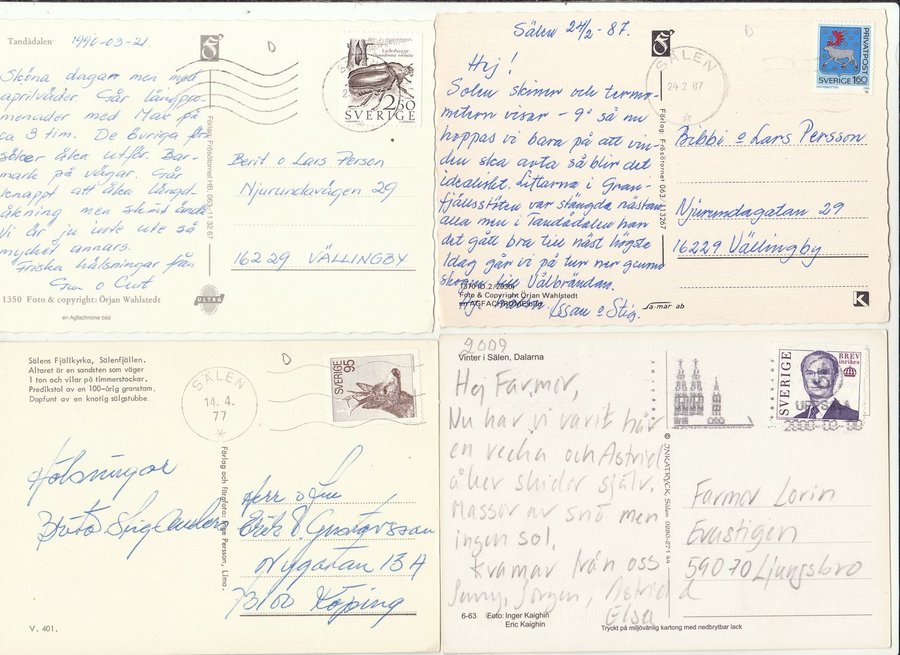 Tandådalen 1990-03-21
Sköna dagar men med
aprilväder. Går långpro-
menader med Max på
ca 3 tim. De Evriga för-
söker åka utför. Bar-
mark på vägar. Går
knappt att åka längd-
åkning men skönt ändå
Vi är ju inte ute så
mycket annars.
Friska hälsningar från
Gun o Curt
1350 Foto & copyright: Örjan Wahlstedt
en Agfachrome bild
ULTRA
2.50
SVERIGE
Berit o Lars Person
Njurundavägen 29
162 29 VÄLLINGBY
Sälen 24/2 -87.
Hej!
Solen skiner och termo-
metern visar -9° så nu
hoppas vi bara på att vin-
den ska avta så blir det
idealiskt. Liftarna i Gran-
fjällsstöten var stängda nästan
alla men i Tandådalen har
det gått bra till näst högsta
Idag går vi på tur ner genom
skogen till Vålbrändan.
Issan o Stig.
Foto & Copyright Örjan Wahlstedt
en AGFACHROME-bild
Sa-mar ab
K
SÄLEN
24 2 87
PRIVATPOST
SVERIGE 160
Förlag: Frösötornet 063-113267
Bibbi o Lars Persson
Njurundagatan 29
16229 Vällingby
Sälens Fjällkyrka, Sälenfjällen.
Altaret är en sandsten som väger
1 ton och vilar på timmerstockar.
Predikstol av en 100-årig granstam.
Dopfunt av en knotig sälgstubbe.
SÄLEN
14. 4.
77
SVERIGE 95
Hälsningar
Brita Stig Anders
Herr o Fru
Erik V. Gustavsson
Nygatan 13 A
73100 Köping
V. 401.
2009
Vinter i Sälen, Dalarna
Hej Farmor,
Nu har vi varit här
en vecka och Astrid
åker skidor själv.
Massor av snö men
ingen sol.
Kramar från oss
Jenny, Jörgen, Astrid
Elsa
6-63 Foto: Inger Kaighin
Eric Kaighin
SVERIGE
BREV
inrikes
Farmor Lorin
Evastigen
590 70 Ljungsbro
Tryckt på miljövänlig kartong med nedbrytbar lack